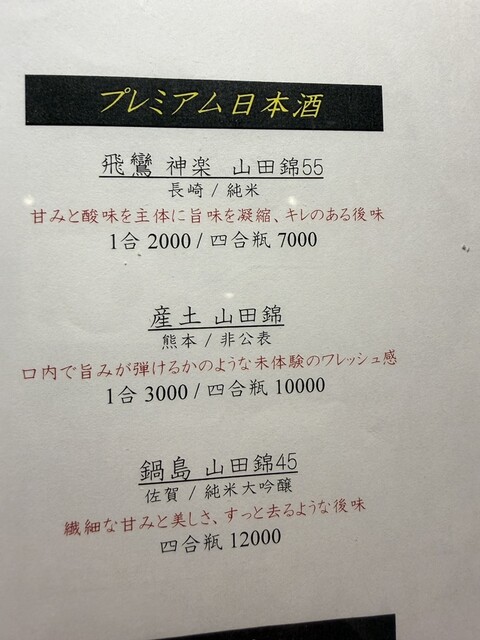 プレミアム日本酒
飛鸞 神楽 山田錦55
長崎 / 純米
甘みと酸味を主体に旨味を凝縮、キレのある後味
1合 2000 / 四合瓶 7000
産土 山田錦
熊本 / 非公表
口内で旨みが弾けるかのような未体験のワレッシュ感
1合 3000 / 四合瓶 10000
鍋島 山田錦45
佐賀 / 純米大吟醸
繊細な甘みと美しさ、すっと去るような後味
四合瓶 12000